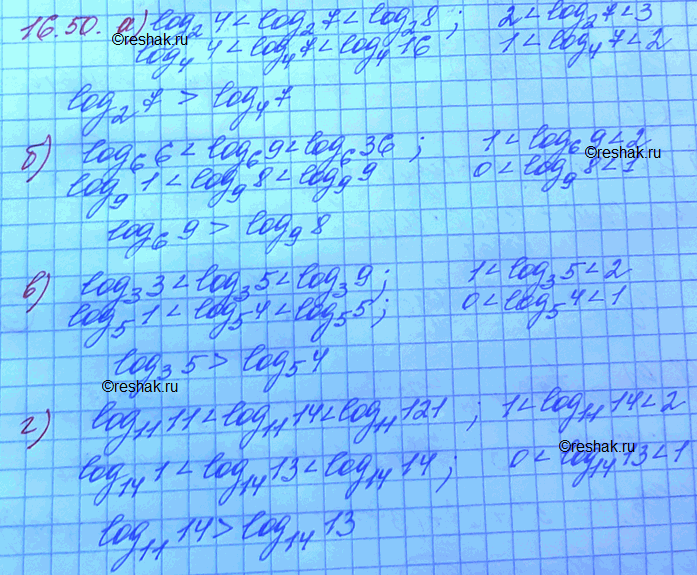 16.50. а) log₂4 < log₂7 < log₂8 ; 2 < log₂7 < 3
©reshak.ru
log₄4 < log₄7 < log₄16 1 < log₄7 < 2
log₂7 > log₄7
б) log₆6 < log₆9 < log₆36 ; 1 < log₆9 < 2
©reshak.ru
log₉1 < log₉8 < log₉9 0 < log₉8 < 1
log₆9 > log₉8
в) log₃3 < log₃5 < log₃9 ; 1 < log₃5 < 2
log₅1 < log₅4 < log₅5 ; 0 < log₅4 < 1
log₃5 > log₅4
©reshak.ru
г) log₁₁11 < log₁₁14 < log₁₁121 ; 1 < log₁₁14 < 2
©reshak.ru
log₁₄1 < log₁₄13 < log₁₄14 ; 0 < log₁₄13 < 1
log₁₁14 > log₁₄13